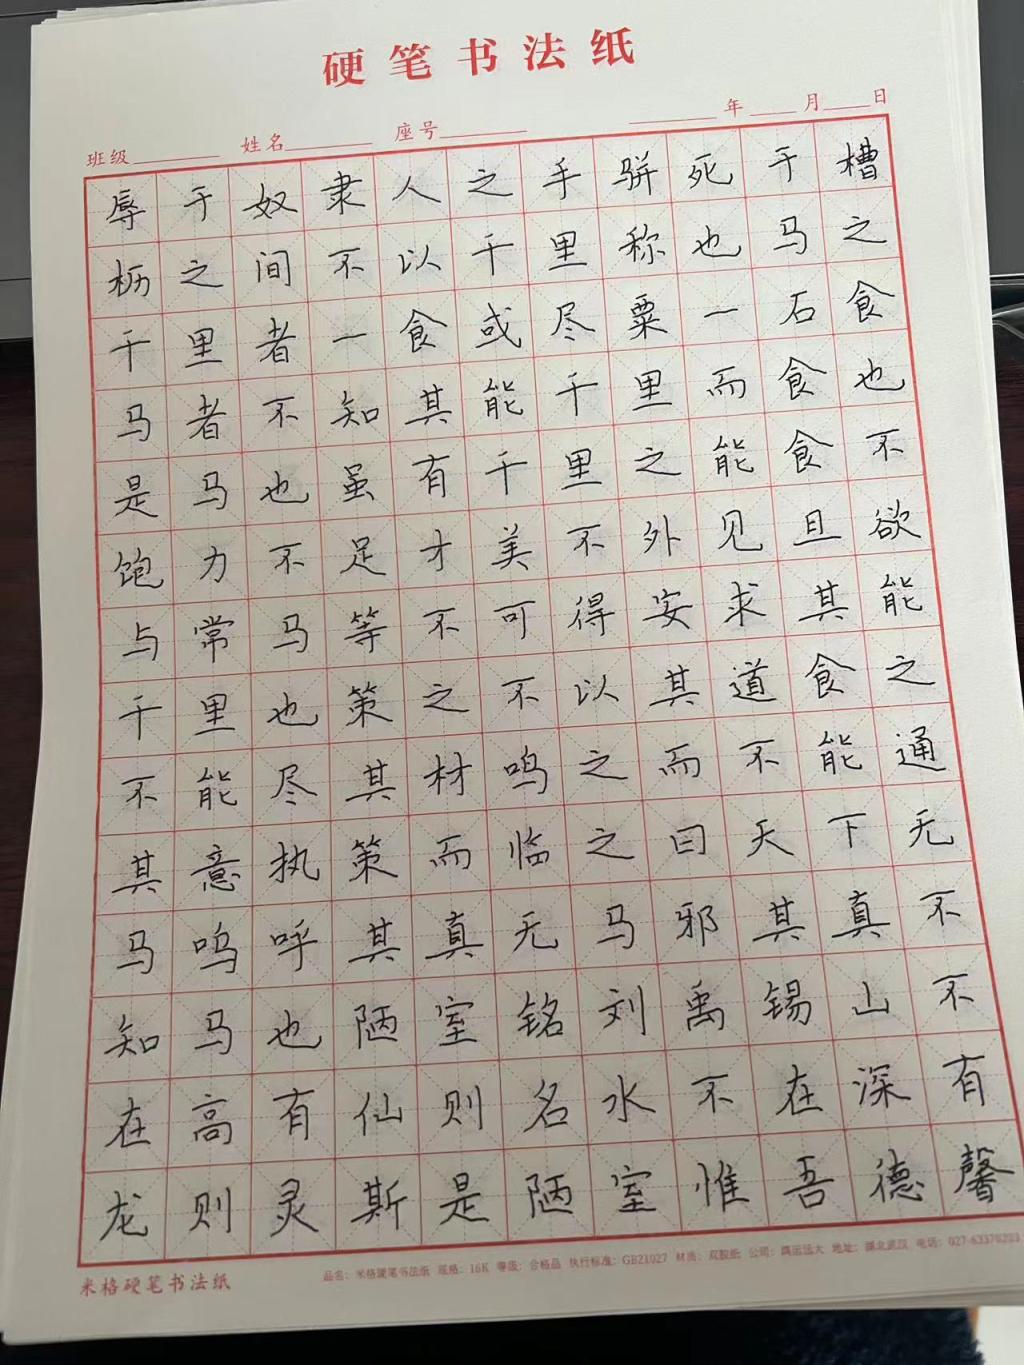 硬笔书法纸
班级 姓名 座号 年 月 日
辱于奴隶人之手骈死于槽
枥之间不以千里称也马之
千里者一食或尽粟一石食
马者不知其能千里而食也
是马也虽有千里之能食不
饱力不足才美不外见且欲
与常马等不可得安求其能
千里也策之不以其道食之
不能尽其材鸣之而不能通
其意执策而临之曰天下无
马呜呼其真无马邪其真不
知马也陋室铭刘禹锡山不
在高有仙则名水不在深有
龙则灵斯是陋室惟吾德馨
米格硬笔书法纸 品名：米格硬笔书法纸 规格：16K 等级：合格品 执行标准：GB21027 材质：双胶纸 公司：鸿运远大 地址：湖北武汉 电话：027-63376203